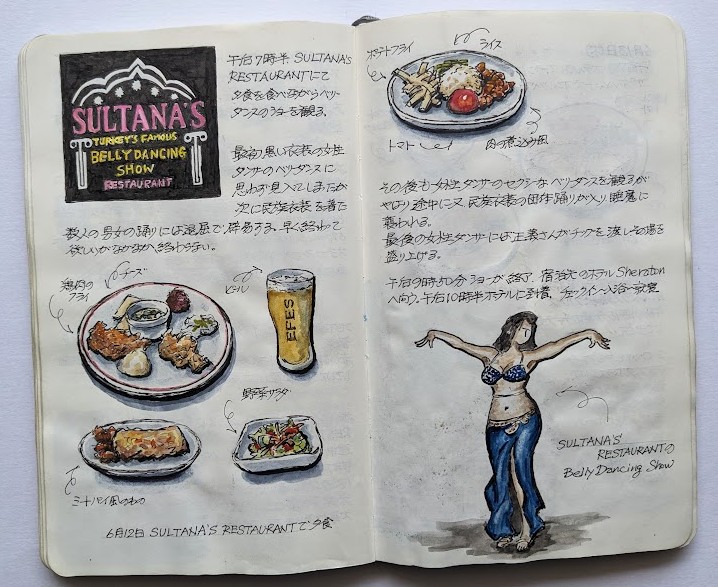 SULTANA'S
TURKEY'S FAMOUS
BELLY DANCING
SHOW
RESTAURANT
午后7時半 SULTANA'S
RESTAURANTにて
夕食を食べながらベリー
ダンスのショーを観る。
最初、黒い衣装の女性
ダンサーのベリーダンスに
思わず見入ってしまったが
次に民族衣装を着た
数人の男女の踊りには退屈で辟易する。早く終わって
欲しいがなかなか終わらない。
鶏肉の
フライ
チーズ
ビール
EFES
野菜サラダ
ミートパイ風のもの
6月12日 SULTANA'S RESTAURANTで夕食
ポテトフライ
ライス
トマト
肉の煮込み風
その後も女性ダンサーのセクシーなベリーダンスを観るが
やはり途中に又、民族衣装の団体踊りが入り睡魔に
襲われる。
最後の女性ダンサーには正義さんがチップを渡しその場を
盛り上げる。
午后9時50分ショーが終了、宿泊先のホテル Sheraton
へ向う。午后10時半ホテルに到着、チェックイン〜入浴〜就寝
SULTANA'S
RESTAURANTの
Belly Dancing Show